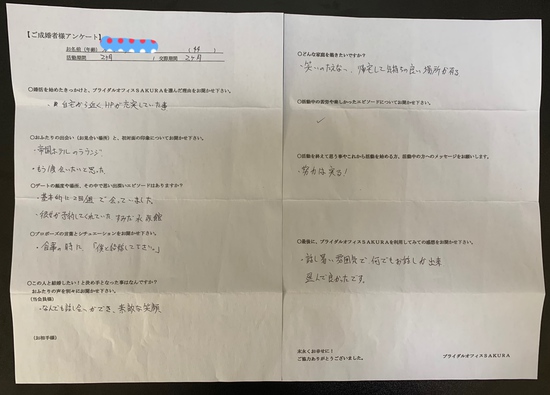 【ご成婚者様アンケート】
お名前（年齢）（44）
活動期間 2カ月 交際期間 2ヶ月
○婚活を始めたきっかけと、ブライダルオフィスSAKURAを選んだ理由をお聞かせ下さい。
・自宅から近く、HPが充実していた事
○おふたりの出会い（お見合い場所）と、初対面の印象についてお聞かせ下さい。
・帝国ホテルのラウンジ
・もう1度会いたいと思った
○デートの頻度や場所、その中で思い出深いエピソードはありますか？
・基本的に2週で会っていました
・彼女が予約してくれていたすみだ水族館
○プロポーズの言葉とシチュエーションをお聞かせ下さい。
・食事の時に、「僕と結婚して下さい。」
○この人と結婚したい！と決め手となった事はなんですか？
おふたりの声を別々にお聞かせ下さい。
(当会員様)
・なんでも話し合いができ、素敵な笑顔
(お相手様)
○どんな家庭を築きたいですか？
・笑いのたえない、帰宅して気持ちの良い場所が有る
○活動中の苦労や嬉しかったエピソードについてお聞かせ下さい。
○活動を終えて思う事やこれから活動を始める方、活動中の方へのメッセージをお願いします。
・努力は実る！
○最後に、ブライダルオフィスSAKURAを利用してみての感想をお聞かせ下さい。
・話し易い雰囲気で何でもお話しが出来
選んで良かったです。
末永くお幸せに！
ご協力ありがとうございました。
ブライダルオフィスSAKURA